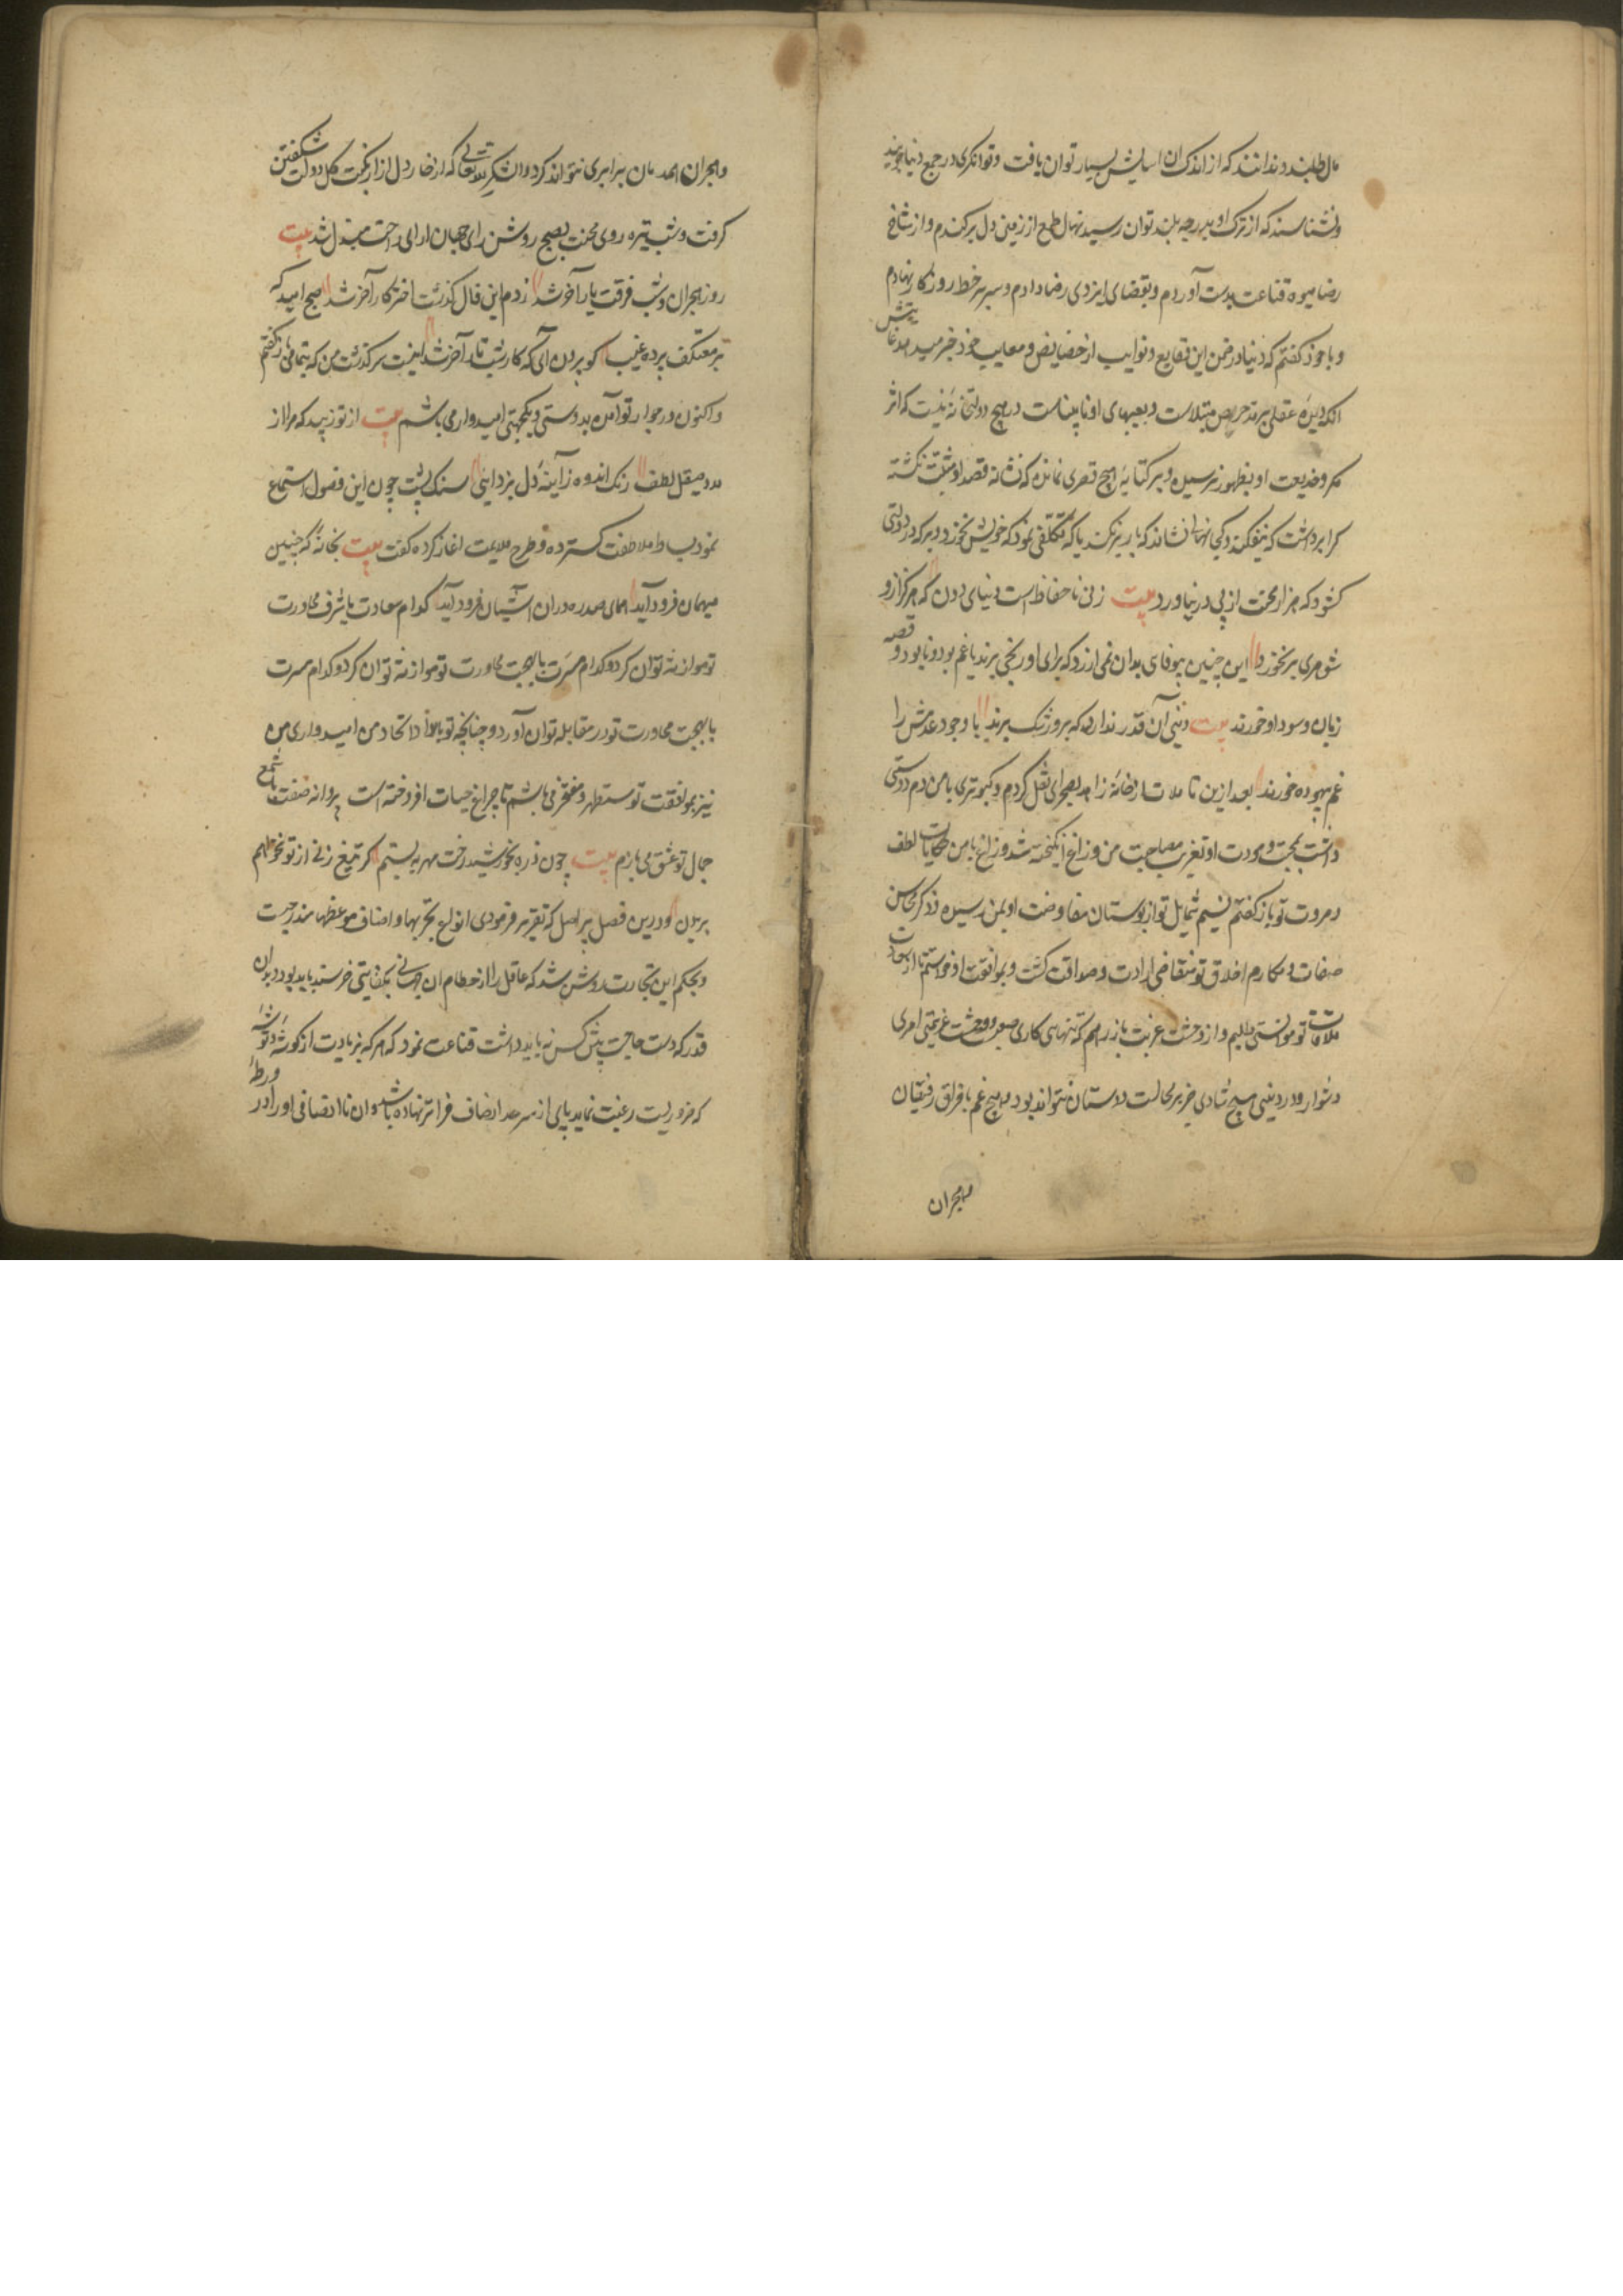 مال طلبند و ندانند که از اندک آن اسایش بسیار توان یافت و توانکری در جمع دنیا جویند
و نشناسند که از ترک او بدرجه بلند توان رسید نهال طمع از زمین دل برکندم و از شاخ
رضا میوه قناعت بدست آوردم و بقضای ایزدی رضا دادم و سر بر خط روزکار نهادم
و با خود کفتم که دنیا در ضمن این وقایع و نوایب از خصایص و معایب خود خبر میدهد غایتش
انکه دیده عقل بر مد حریص مبتلاست و بعیبهای او نابیناست در هیچ دولتخانه نیست که اثر
مکر و خدیعت او بظهور نرسیده و بر کتابه هیچ قصری نمانده که نشانه قصد او مثبت نکشته
کرا برداشت که نیفکند و کی نهالی نشاند که باز بر نکند با که تکلفی نمود که خونش نخورد و بر که در دولتی
کشود که هزار محنت از پی در نیاورد بیت زنی نا حفاظ است دنیای دون که هرکز ازو
شوهری بر نخورد این چنین بیوفای بدان نمی ارزد که برای او رنجی برند یا غم بود و نابود و قصه
زیان و سود او خورند بیت دنیی آن قدر ندارد که برو رشک برند یا وجود عدمش را
غم بیهوده خورند بعد ازین تاملات از خانه زاهد بصحرای نقل کردم و کبوتری با من دم دوستی
داشت بمحبت و مودت او تقریب مصاحبت من و زاغ انکیخته شد و زاغ با من حکایات لطف
و مروت تو باز کفتم نسیم شمایل تو از بوستان مفاوضت او بمن رسیده و ذکر محاسن
صفات و مکارم اخلاق تو متقاضی ارادت و صداقت کشت و بموافقت او خواستم تا از سعادت
ملاقات تو موانستی طلبم و از وحشت غربت باز رهم که تنهای کاری صعب و وحشت غریبی امری
دشوار و در دنیی هیچ شادی خر بر مجالست دوستان نتواند بود و هیچ غم با فراق رفیقان
مهجران
و هجران همدمان برابری نتواند کرد و الشکر لله تعالی که از خار دل ازار نکبت کل دولت شکفتن
کرفت و شب تیره روی محنت بصبح روشن رای جهان ارای راحت مبدل شد بیت
روز هجران و شب فرقت یار آخر شد زدم این فال کذشت اختر کار آخر شد صبح امید که
بد معتکف پرده غیب کو برون آی که کار شب تار آخر شد اینست سرکذشت من که بتمامی باز کفتم
و اکنون در جوار تو آمده بدوستی و یکجهتی امیدوار می باشم بیت از تو زیبد که مرا از
مدد صیقل لطف زنک اندوه ز آینه دل بزدایی سنک پشت چون این فصول استماع
نمود بساط ملاطفت کسترده و طرح ملایمت اغاز کرده کفت بیت بخانه که چنین
میهمان فرود آید همای سدره دران اشیان فرود آید کدام سعادت با شرف مجاورت
تو موازنه توان کرد و کدام مسرت با بهجت مجاورت تو موازنه توان کرد و کدام مسرت
با بهجت مجاورت تو در مقابله توان آورد و چنانچه تو بالوا داتحاد من امیدواری من
نیز بموافقت تو مستظهر و مفتخر می باشم تا چراغ حیات افروخته است پروانه صفت با شمع
جمال تو عشق می بازم بیت چون ذره بخورشید رخت مهر ببستم کر تیغ زنی از تو نخواهم
برید و درین فصل پر اصل که تقریر فرمودی انواع تجربها و اصناف موعظها مندرجست
و بحکم این تجارت روشن شد که عاقل را از حطام این جهانی بکفایتی خرسند باید بود و بدان
قدر که دست حاجت پیش کس نه باید داشت قناعت نمود که هر که بزیادت از کوشه و توشه
که ضروریست رغبت نماید پای از سرحد انصاف فراتر نهاده باشد و ان ناانصافی او را در ورطه